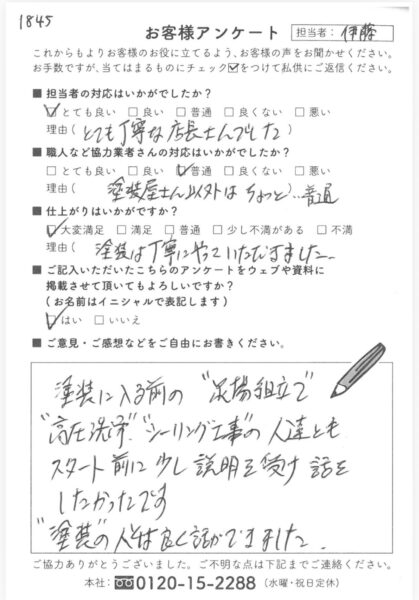 1845
お客様アンケート 担当者: 伊藤
これからもよりお客様のお役に立てるよう、お客様の声をお聞かせください。
お手数ですが、当てはまるものにチェック☑をつけて私供にご返信ください。
■ 担当者の対応はいかがでしたか?
☑とても良い □良い □普通 □良くない □悪い
理由( とても丁寧な店長さんでした )
■ 職人など協力業者さんの対応はいかがでしたか?
□とても良い □良い ☑普通 □良くない □悪い
理由( 塗装屋さん以外はちょっと)…普通
■ 仕上がりはいかがですか?
☑大変満足 □満足 □普通 □少し不満がある □不満
理由( 塗装は丁寧にやっていただけました。
■ ご記入いただいたこちらのアンケートをウェブや資料に
掲載させて頂いてもよろしいですか?
(お名前はイニシャルで表記します)
☑はい □いいえ
■ ご意見・ご感想などをご自由にお書きください。
塗装に入る前の "足場組立て"
"高圧洗浄"、"シーリング工事"の人達とも
スタート前に少し説明を受け話を
したかったです
"塗装"の人とは良く話ができました。
ご協力ありがとうございました。ご不明な点は下記までご連絡ください。
本社: 0120-15-2288 (水曜・祝日定休)